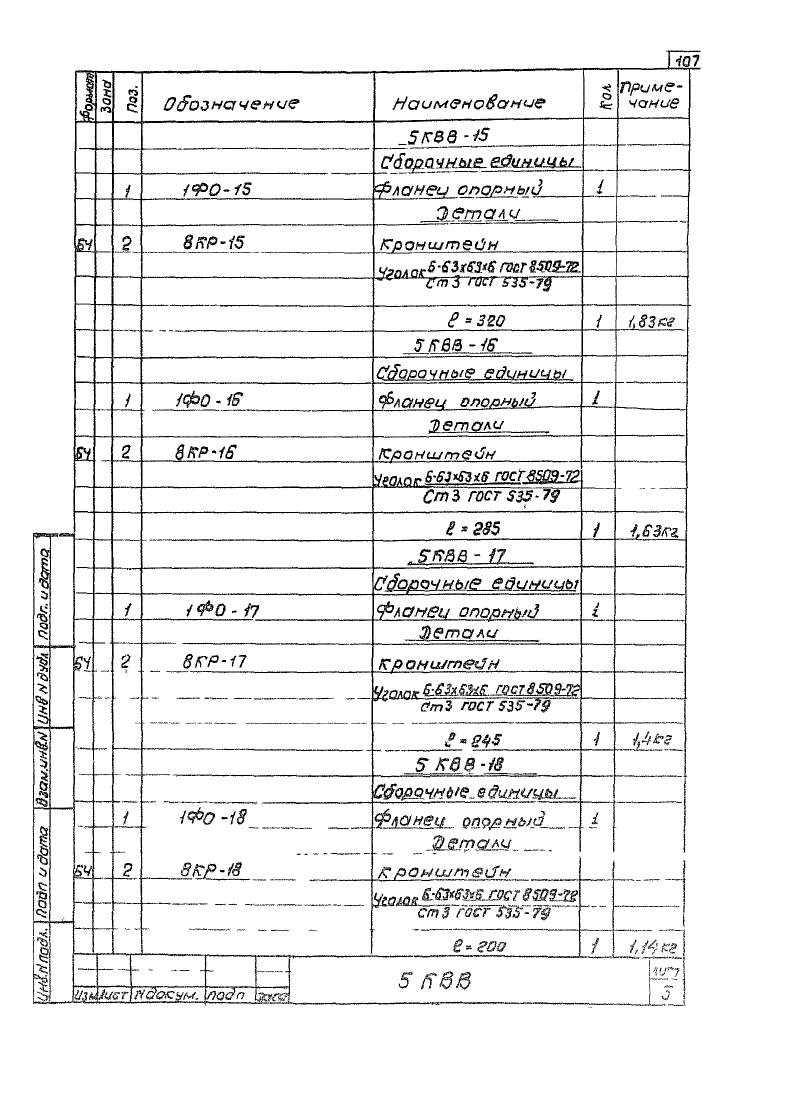 107
Формат Зона Поз. Обозначение Наименование Кол Приме-
чание
5КВВ-15
Сборочные единицы
1 1ФО-15 Фланец опорный 1
Детали
БЧ 2 8КР-15 Кронштейн
Уголок Б-63х63х6 ГОСТ 8509-72
Ст3 ГОСТ 535-79
ℓ = 320 1 1,83кг
5КВВ-16
Сборочные единицы
1 1ФО-16 Фланец опорный 1
Детали
БЧ 2 8КР-16 Кронштейн
Уголок Б-63х63х6 ГОСТ 8509-72
Ст3 ГОСТ 535-79
ℓ = 285 1 1,63кг
5КВВ-17
Сборочные единицы
1 1ФО-17 Фланец опорный 1
Детали
БЧ 2 8КР-17 Кронштейн
Уголок Б-63х63х6 ГОСТ 8509-72
Ст3 ГОСТ 535-79
ℓ = 245 1 1,4кг
5КВВ-18
Сборочные единицы
1 1ФО-18 Фланец опорный 1
Детали
БЧ 2 8КР-18 Кронштейн
Уголок Б-63х63х6 ГОСТ 8509-72
Ст3 ГОСТ 535-79
ℓ = 200 1 1,14кг
Подп. и дата
Инв N дубл
Взам.инв.N
Подп и дата
Инв.N подл.
Изм Лист N докум. Подп Дата
5КВВ
Лист
5